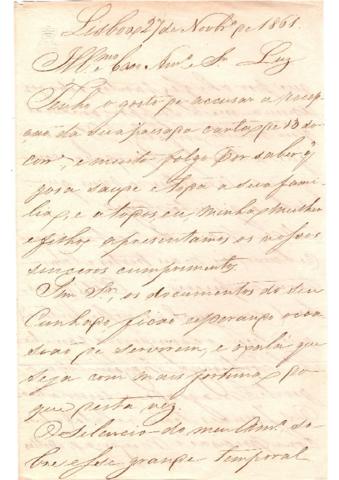 Lisboa 27 de Novbrº de 1861.
Illmo e Caro Amº e Sr. Luz
Tenho o gosto de accusar a recep-
ção da sua presada carta de 13 do
corre, e muito folgo por saber q
gosa saude e toda a sua fami-
lia, e a todos eu, minha mulher
e filhos apresentamos os nossos
sinceros cumprimentos.
Sim Sr., os documentos do seu
Cunhado, ficão esperando occa-
seão de servirem, e oxalá que
seja com mais fortuna, do
que desta vez.
O silencio do meu Amº so-
bre esse grande temporal